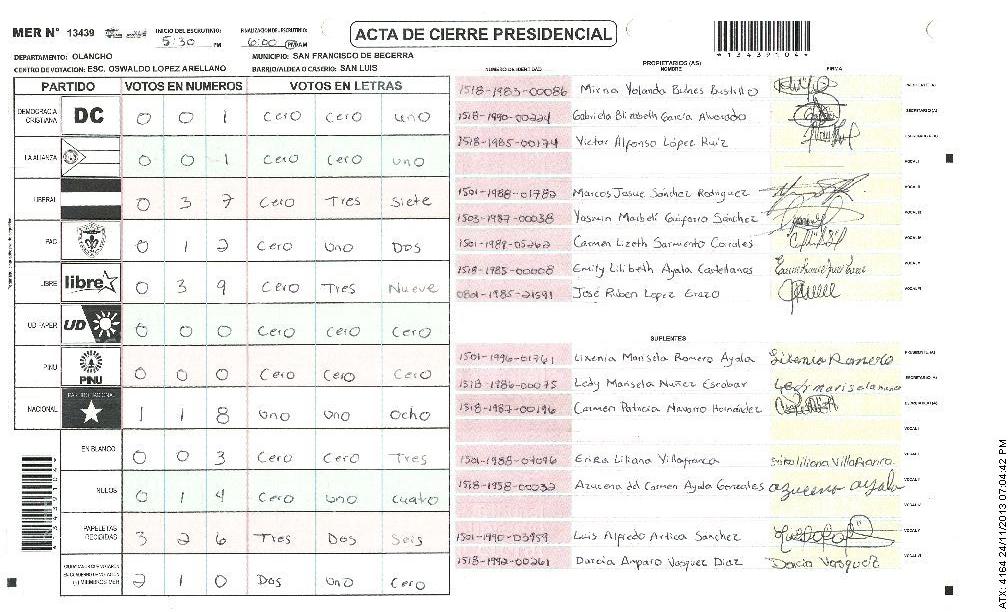 MER N° 13439 INICIO DEL ESCRUTINIO: 5:30 PM FINALIZACION DE ESCRUTINIO: 6:00 PM/AM ACTA DE CIERRE PRESIDENCIAL
DEPARTAMENTO: OLANCHO MUNICIPIO: SAN FRANCISCO DE BECERRA
CENTRO DE VOTACION: ESC. OSWALDO LOPEZ ARELLANO BARRIO/ALDEA O CASERIO: SAN LUIS
PARTIDO VOTOS EN NUMEROS VOTOS EN LETRAS
DEMOCRACIA CRISTIANA DC 0 0 1 Cero Cero uno
LA ALIANZA 0 0 1 Cero Cero uno
LIBERAL 0 3 7 Cero Tres Siete
PAC 0 1 2 Cero Uno Dos
LIBRE libre 0 3 9 Cero Tres Nueve
UD-FAPER UD 0 0 0 Cero Cero Cero
PINU PINU 0 0 0 Cero Cero Cero
NACIONAL PARTIDO NACIONAL 1 1 8 Uno Uno Ocho
EN BLANCO 0 0 3 Cero Cero Tres
NULOS 0 1 4 Cero uno cuatro
PAPELETAS RECIBIDAS 3 2 6 Tres Dos Seis
2 1 0 Dos uno Cero
PROPIETARIOS (AS)
NUMERO DE IDENTIDAD NOMBRE FIRMA
1518-1983-00086 Mirna Yolanda Bustillo
1518-1990-00224 Gabriela Elizabeth García Alvarado
1518-1985-00174 Victor Alfonso López Ruiz
VOCAL I
1501-1988-01782 Marcos Josue Sánchez Rodriguez
1503-1987-00038 Sánchez
Carmen Lizeth Sarmiento Corrales
1518-1985-00008 Emily Lilibeth Ayala Castellanos
0801-1985-21591 José Ruben Lopez Erazo
SUPLENTES
1501-1996-01761 Lixenia Marisela Romero Ayala
1518-1986-00075 Ledy Marisela Nuñez Escobar
1518-1987-00196 Carmen Patricia Navarro Hernández
VOCAL I
Ericka Liliana Villafranca
1518-1958-00032 Azucena del Carmen Ayala Gonzales azucena ayala
Luis Alfredo Artica Sanchez
1518-1992-00261 Darcia Amparo Vasquez Diaz Darcia Vasquez
4 1 3 4 3 9 1 0 4 4
ATX: 4164 24/11/2013 07:04:42 PM